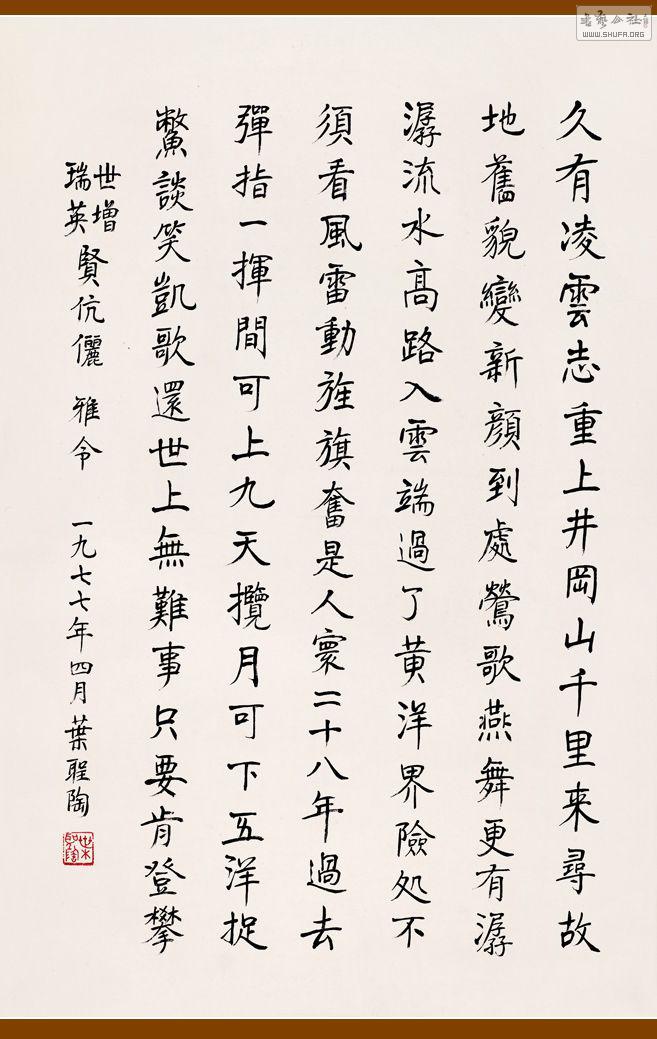 久有凌雲志重上井岡山千里来尋故
地舊貌變新顔到處鶯歌燕舞更有潺
潺流水高路入雲端過了黄洋界險処不
須看風雷動旌旗奮是人寰三十八年過去
彈指一揮間可上九天攬月可下五洋捉
鱉談笑凱歌還世上無難事只要肯登攀
世增
瑞英賢伉儷 雅令 一九七七年四月葉聖陶
葉聖陶
書藝公社
WWW.SHUFA.ORG